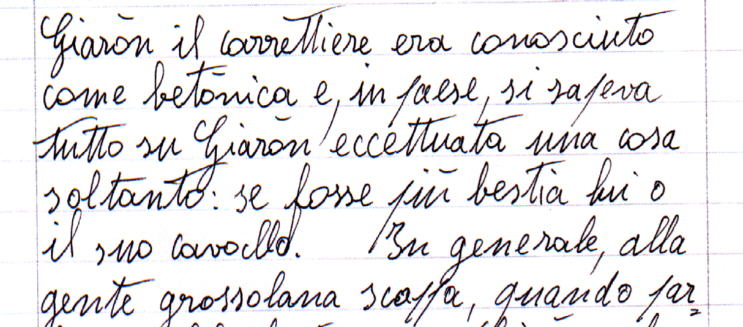 Giarõn il carrettiere era conosciuto
come betõnica e, in paese, si sapeva
tutto su Giarõn eccettuata una cosa
soltanto: se fosse più bestia lui o
il suo cavallo. In generale, alla
gente grossolana scappa, quando par=